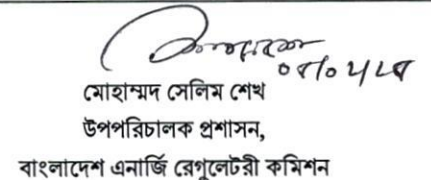 মোহাম্মদ সেলিম শেখ
উপপরিচালক প্রশাসন,
বাংলাদেশ এনার্জি রেগুলেটরী কমিশন